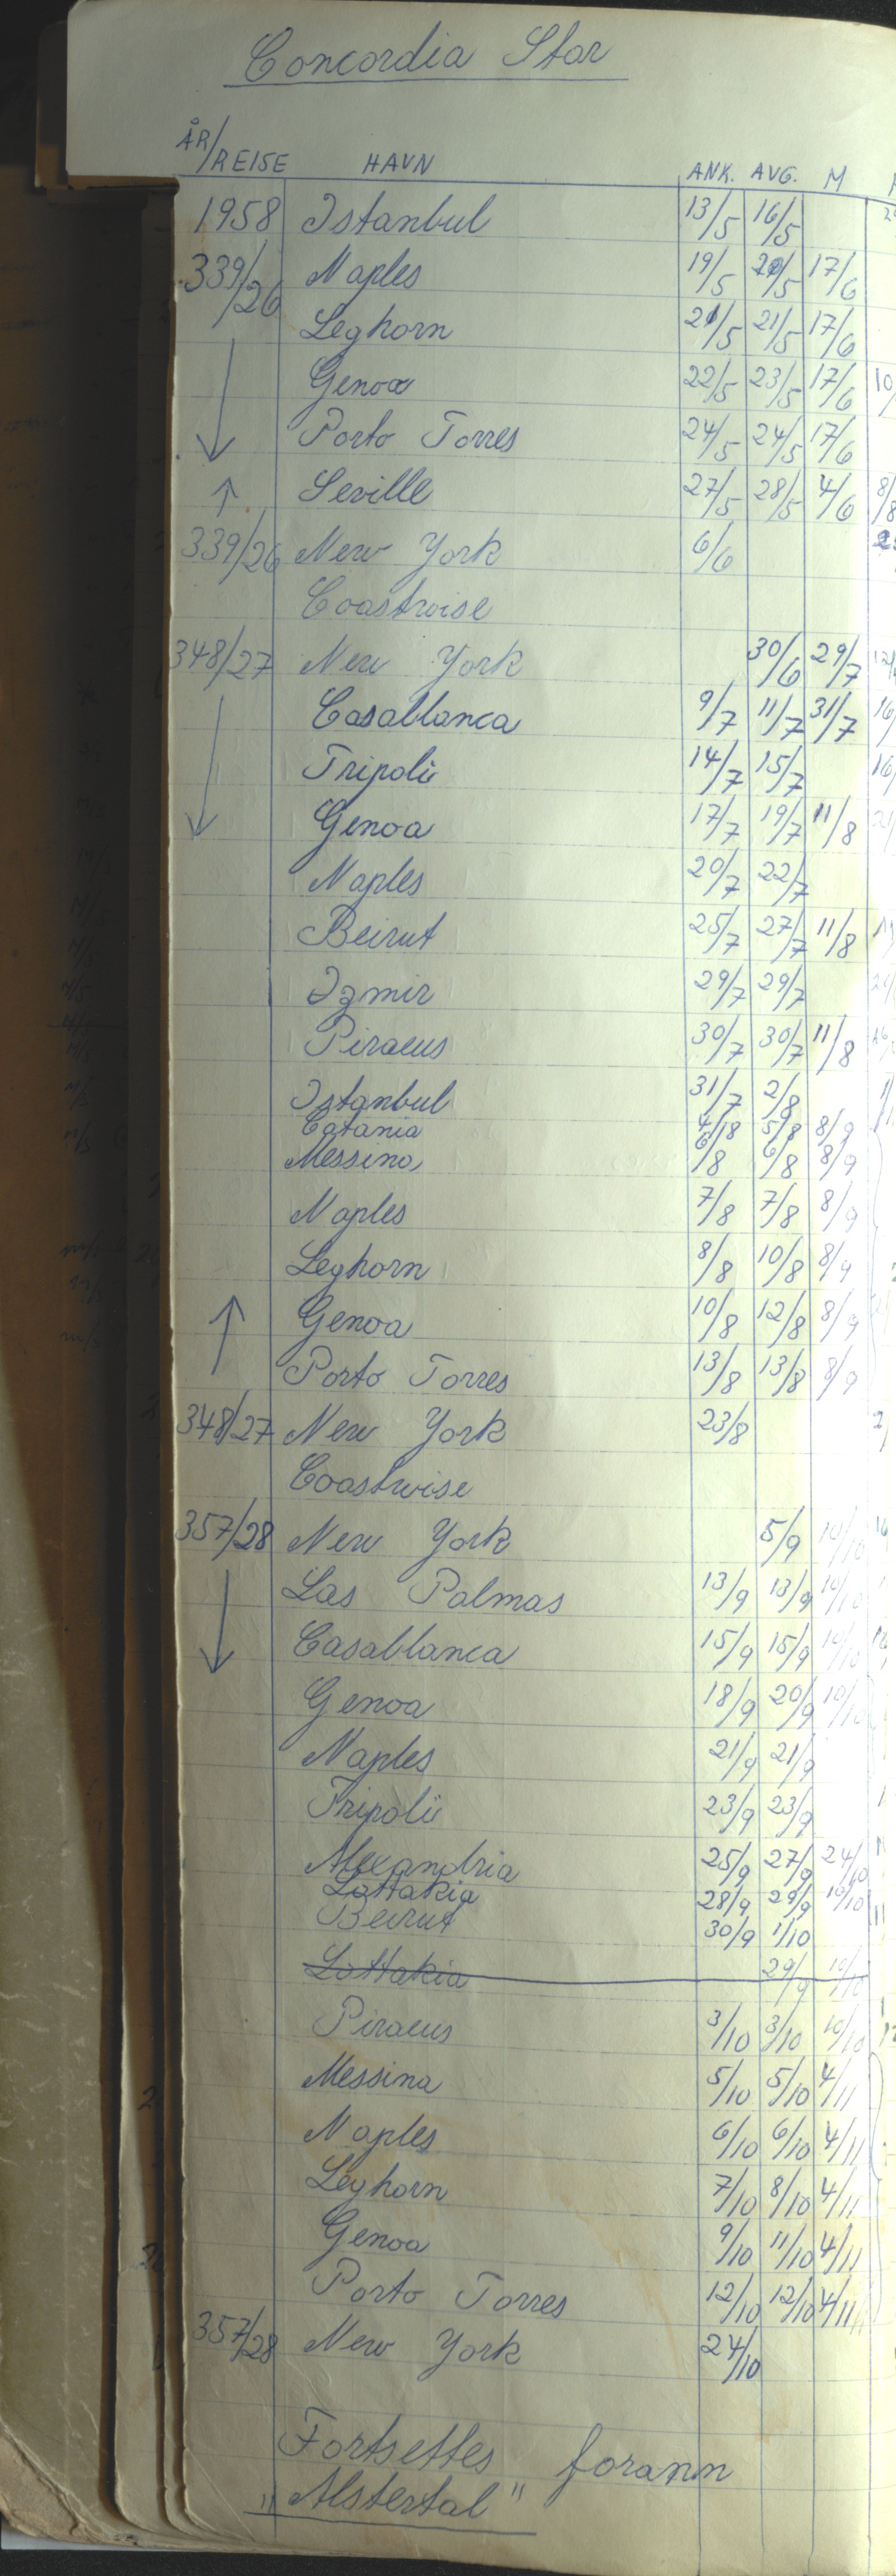 Concordia Star
ÅR/REISE HAVN ANK. AVG. M
1958 Istanbul 13/5 16/5
339/26 Naples 19/5 20/5 17/6
Leghorn 21/5 21/5 17/6
Genoa 22/5 23/5 17/6 10/
↓ Porto Torres 24/5 24/5 17/6
↑ Seville 27/5 28/5 4/6 8/8
339/26 New York 6/6
Coastwise
348/27 New York 30/6 29/7
↓ Casablanca 9/7 11/7 31/7 16/
Tripoli 14/7 15/7 16/
Genoa 17/7 19/7 11/8
Naples 20/7 22/7
Beirut 25/7 27/7 11/8
Izmir 29/7 29/7
Piraeus 30/7 30/7 11/8
Istanbul 31/7 2/8
Catania 4/8 5/8 8/9
Messina 6/8 6/8 8/9
Naples 7/8 7/8 8/9
Leghorn 8/8 10/8 8/9
↑ Genoa 10/8 12/8 8/9
Porto Torres 13/8 13/8 8/9
348/27 New York 23/8
Coastwise
357/28 New York 5/9 10/10
↓ Las Palmas 13/9 13/9 10/10
Casablanca 15/9 15/9 10/10
Genoa 18/9 20/9 10/10
Naples 21/9 21/9
Tripoli 23/9 23/9
Alexandria 25/9 27/9 24/10
Lattakia 28/9 29/9 10/10
Beirut 30/9 1/10
Lattakia 29/9 10/10
Piraeus 3/10 3/10 10/10
Messina 5/10 5/10 4/11
Naples 6/10 6/10 4/11
Leghorn 7/10 8/10 4/11
Genoa 9/10 11/10 4/11
Porto Torres 12/10 12/10 4/11
357/28 New York 24/10
Fortsettes forann
"Alstertal"